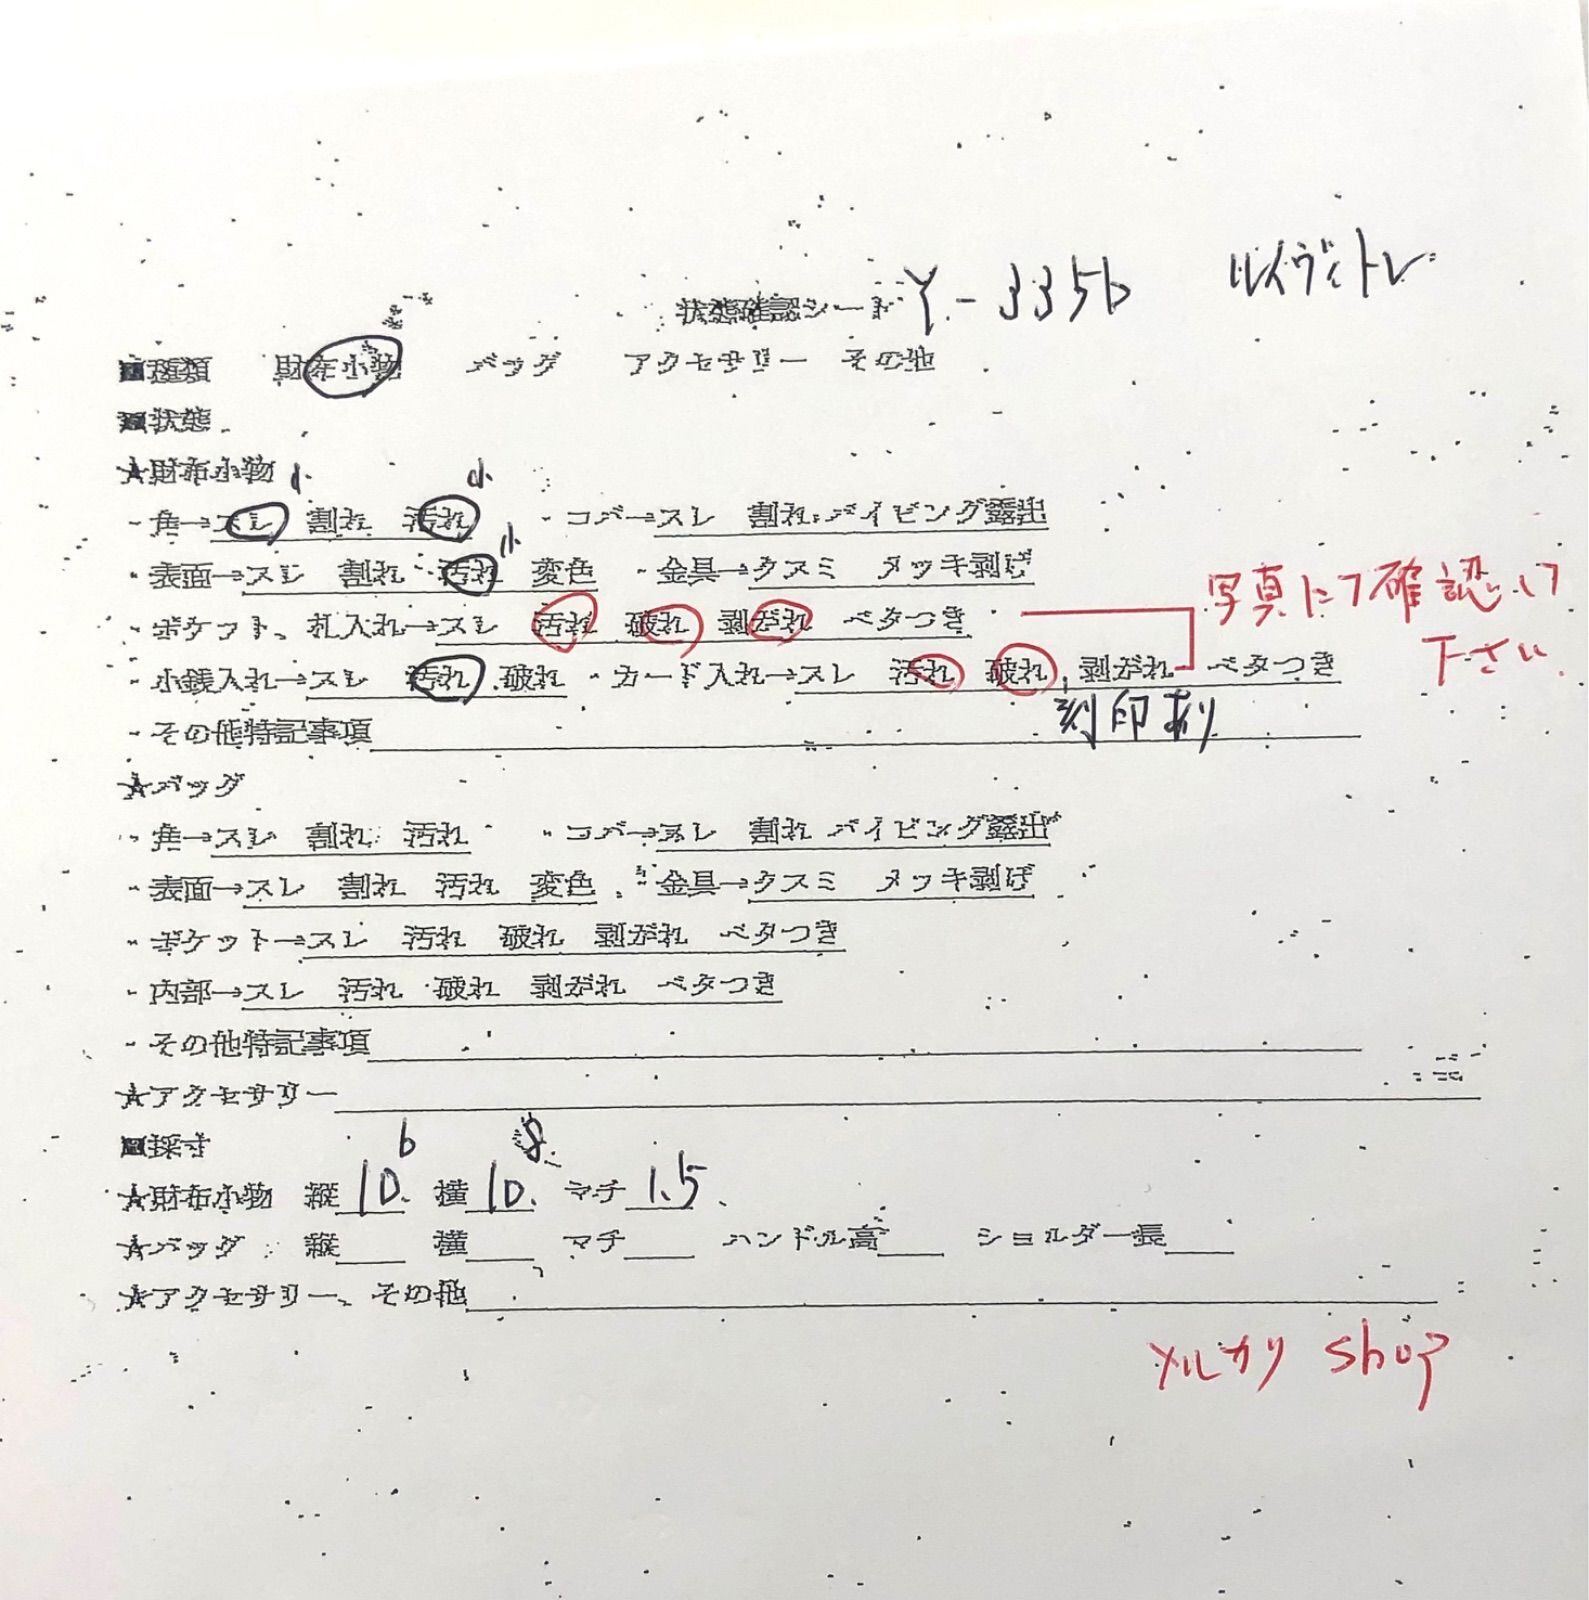 状態確認シート Y-3356 ルイヴィトン
■種類 財布小物 バッグ アクセサリー その他
■状態
★財布小物
小 小
・角→スレ 割れ 汚れ ・コバ→スレ 割れ パイピング露出
小
・表面→スレ 割れ 汚れ 変色 ・金具→クスミ メッキ剥げ
・ポケット、札入れ→スレ 汚れ 破れ 剥がれ ベタつき
写真にて確認して
下さい
・小銭入れ→スレ 汚れ 破れ ・カード入れ→スレ 汚れ 破れ 剥がれ ベタつき
・その他特記事項 刻印あり
★バッグ
・角→スレ 割れ 汚れ ・コバ→スレ 割れ パイピング露出
・表面→スレ 割れ 汚れ 変色 ・金具→クスミ メッキ剥げ
・ポケット→スレ 汚れ 破れ 剥がれ ベタつき
・内部→スレ 汚れ 破れ 剥がれ ベタつき
・その他特記事項
★アクセサリー
■採寸
★財布小物 縦10.6 横10.8 マチ1.5
★バッグ 縦 横 マチ ハンドル高 ショルダー長
★アクセサリー、その他
メルカリ shop